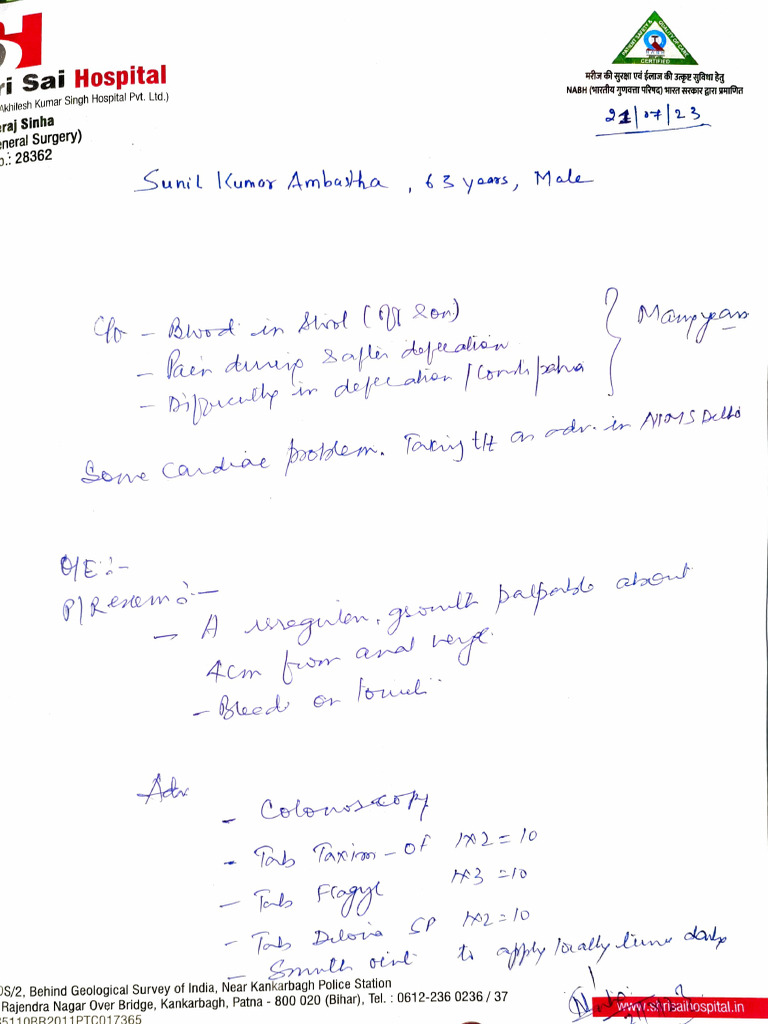 H
ri Sai Hospital
Akhilesh Kumar Singh Hospital Pvt. Ltd.)
eraj Sinha
eneral Surgery)
o.: 28362
CERTIFIED
मरीज की सुरक्षा एवं ईलाज की उत्कृष्ट सुविधा हेतु
NABH (भारतीय गुणवत्ता परिषद) भारत सरकार द्वारा प्रमाणित
21/07/23
Sunil Kumar Ambastha, 63 years, Male
C/o - Blood in Stool (off & on)
- Pain during & after defecation
- Difficulty in defecation / Constipation
Many years
Some cardiac problem. Taking t/t as adv. in AIIMS Delhi
O/E :-
P/R exam :-
- A irregular growth palpable about
4cm from anal verge.
- Bleed on touch
Adv
- Colonoscopy
- Tab Taxim-OF 1x2=10
- Tab Flagyl 1x3=10
- Tab SP 1x2=10
- Smuth oint to apply locally daily
OS/2, Behind Geological Survey of India, Near Kankarbagh Police Station
Rajendra Nagar Over Bridge, Kankarbagh, Patna - 800 020 (Bihar), Tel. : 0612-236 0236 / 37
85110BR2011PTC017365
www.shrisaihospital.in